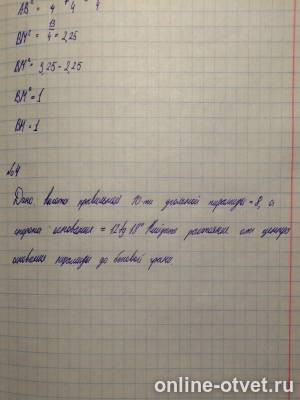 AB² = 4 + 4 4
BM² = 13/4 = 2,25
BM² = 3,25 - 2,25
BM² = 1
BM = 1
№4
Дано высота правильной 10-ти угольной пирамиды = 8, а
сторона основания = 12tg 18° Найдите расстояние от центра
основания пирамиды до боковой грани
online-otvet.ru